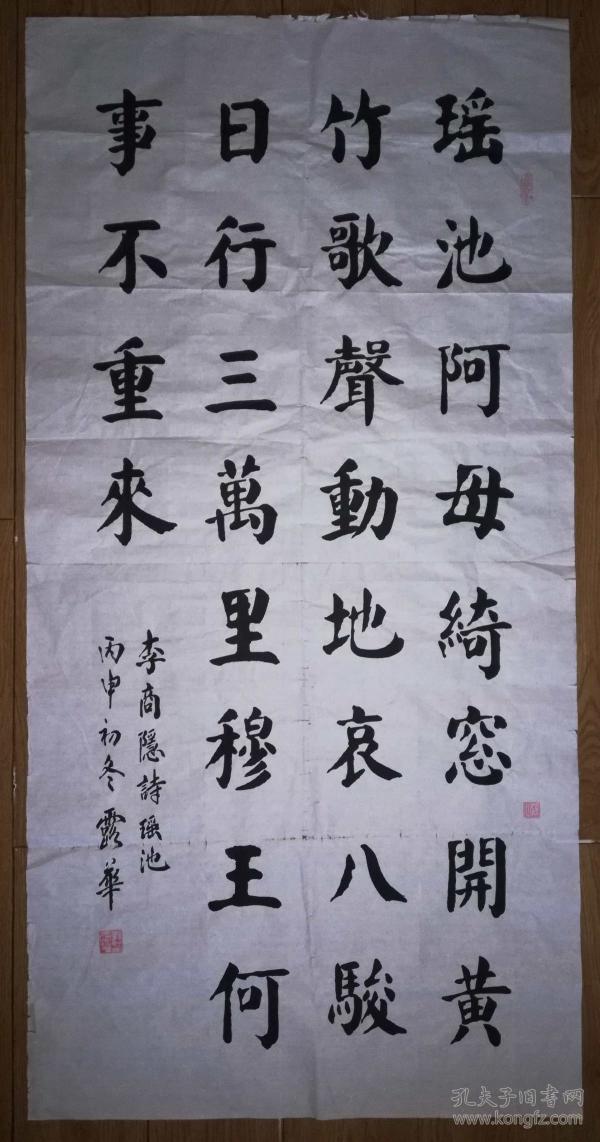 瑶池阿母綺窓開黄
竹歌聲動地哀八駿
日行三萬里穆王何
事不重來
李商隱詩瑶池
丙申初冬露華
孔夫子旧书网
www.kongfz.com